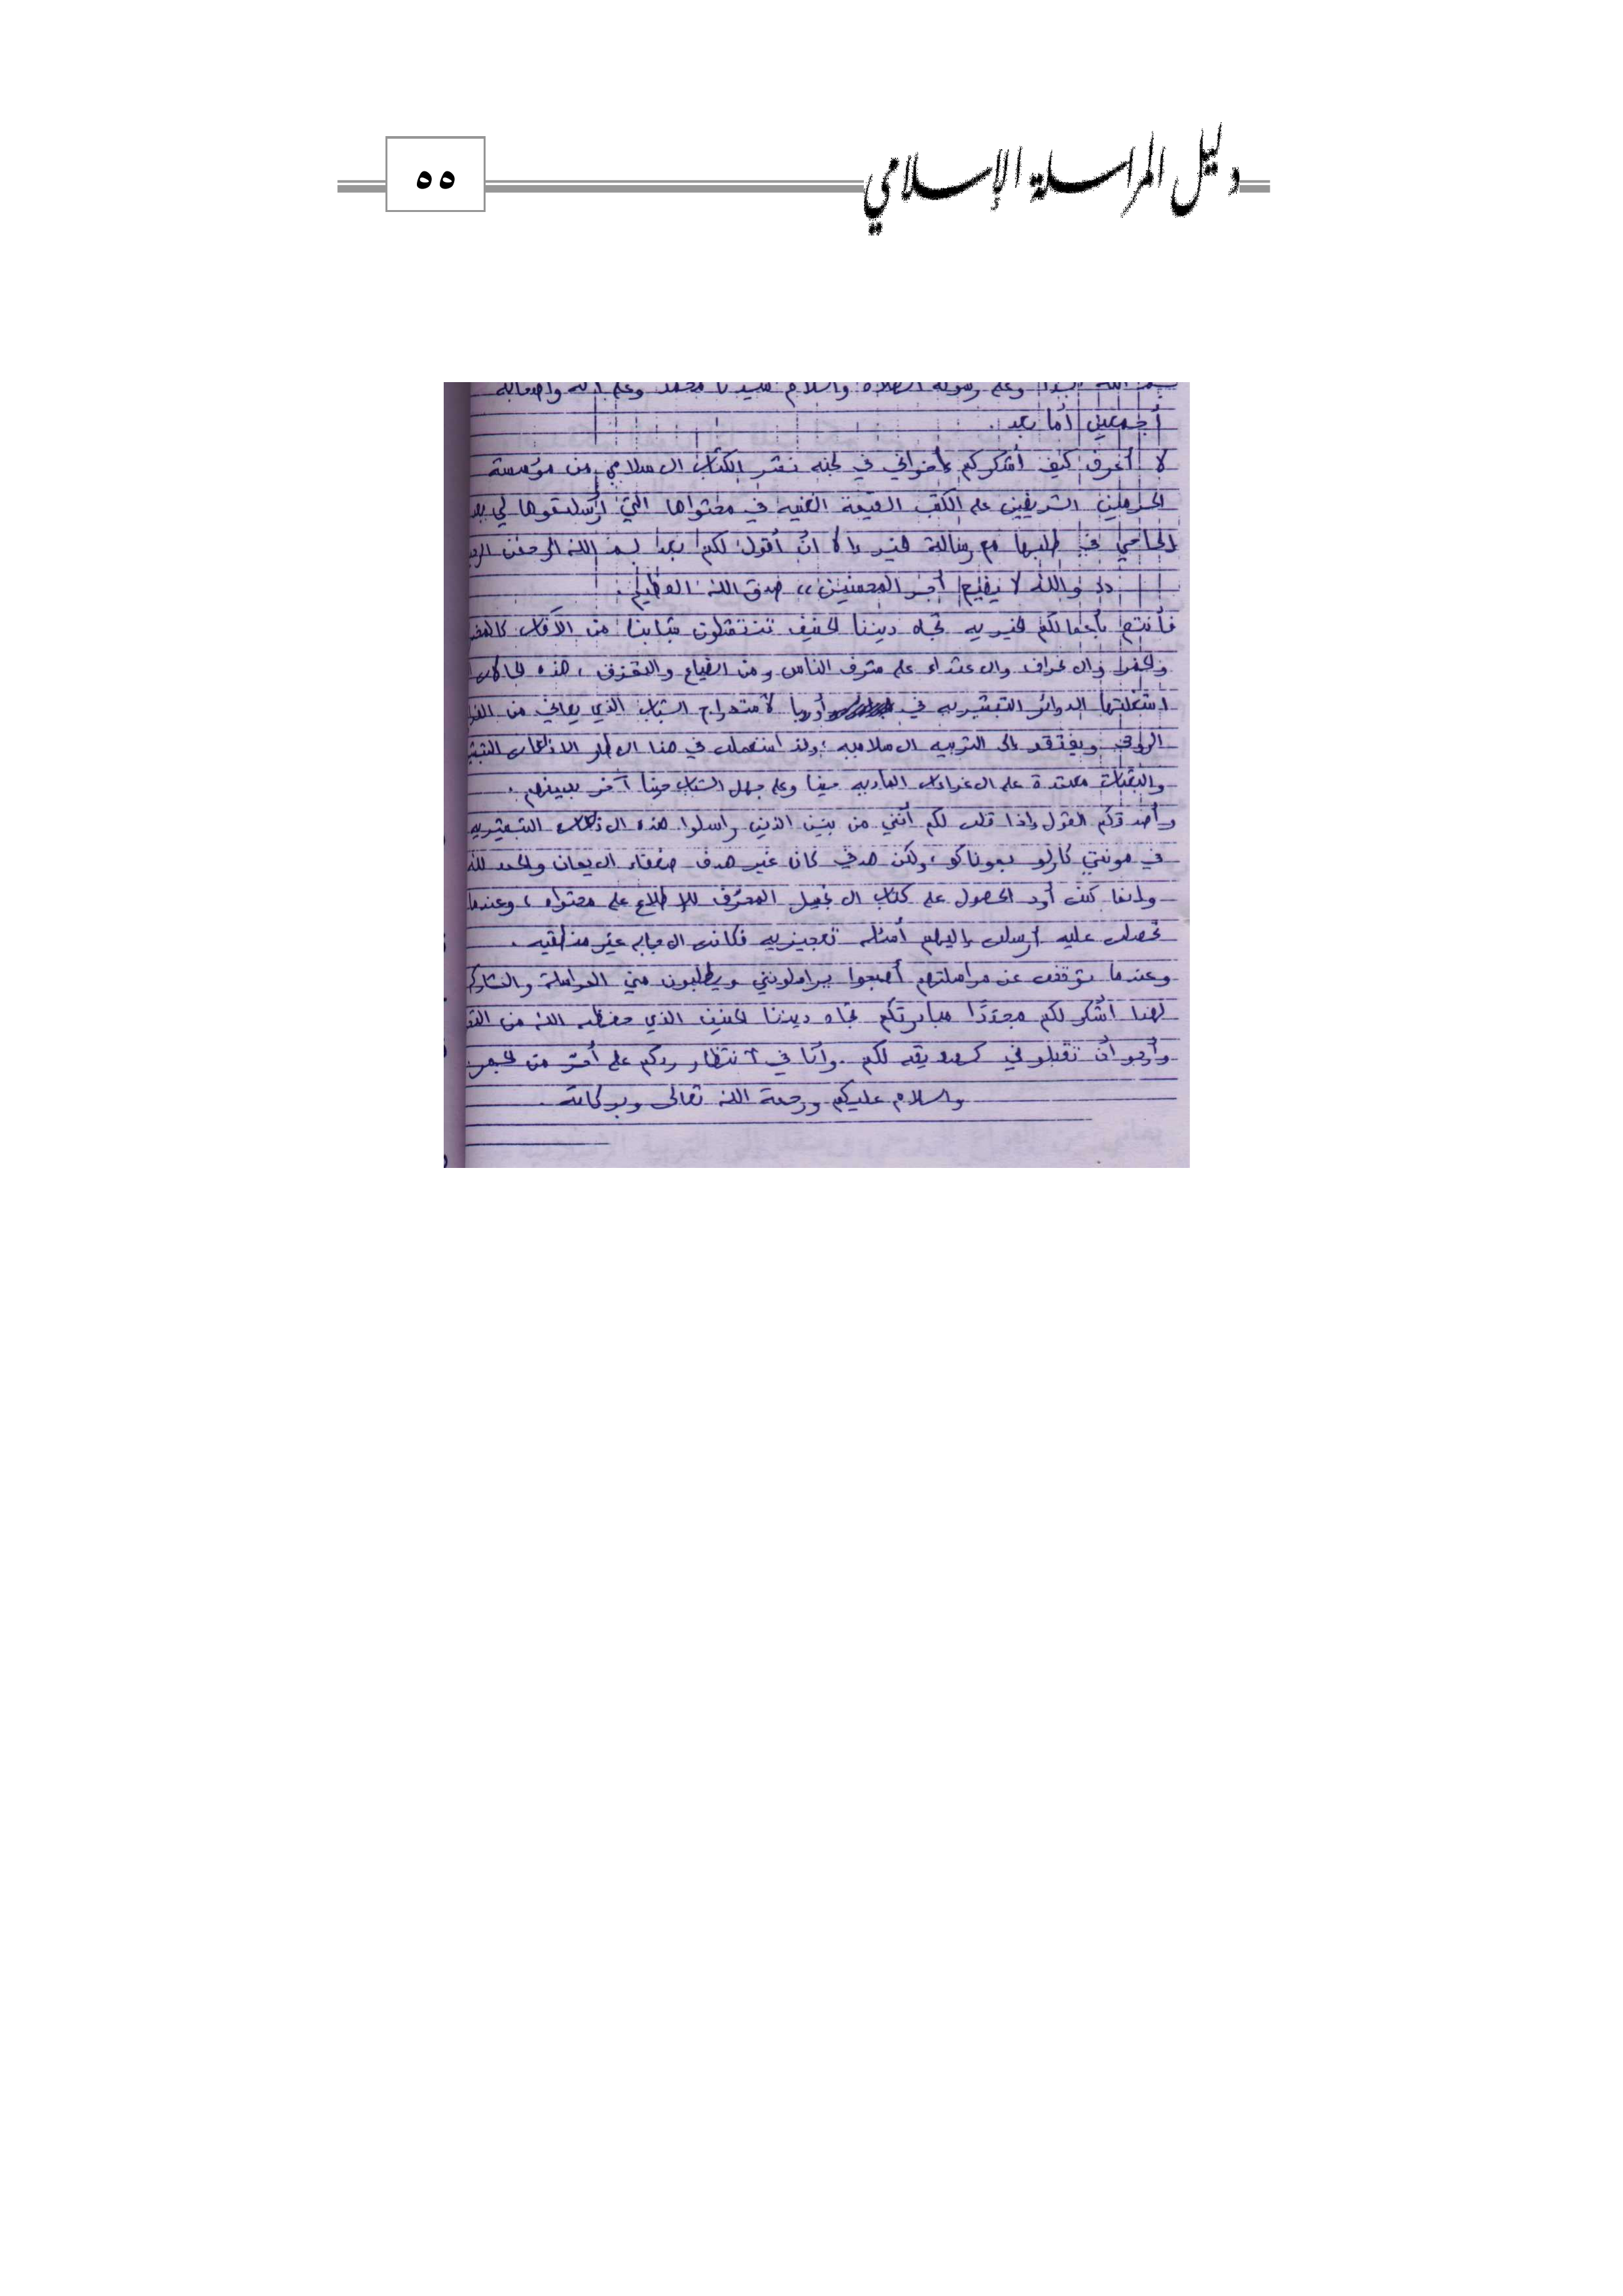 دليل المراسلة الإسلامي
٥٥
وعلى رسوله الصلاة والسلام سيدنا محمد وعلى آله وأصحابه
أجمعين أما بعد.
لا أعرف كيف أشكركم يا خواني في لجنة نشر الكتاب الاسلامي من مؤسسة
الحرمين الشريفين على الكتب القيمة الغنية في محتواها التي أرسلتموها لي بعد
في طلبها مع رسالة إلا ان أقول لكم بعد بسم الله الرحمن
والله لا يضيع أجر المحسنين،، صدق الله العظيم.
فأنتم بأعمالكم الخيريه تجاه ديننا الحنيف تنتشلون شبابنا من الآفات
والخمر والانحراف والاعتداء على شرف الناس ومن الضياع والتمزق، هذه الحالات
استغلتها الدوائر التبشيريه في أوربا لاستدراج الشباب الذي يعاني من
الروحي ويفتقد إلى التربيه الاسلاميه، ولقد استعملت في هذا الاطار الاذاعات
والبعثات معتمدة على الاغراءات الماديه حينا وعلى جهل الشباب حينا آخر بدينهم.
وأصدقكم القول إذا قلت لكم أنني من بين الذين راسلوا هذه الاذاعات التبشيريه
في مونتي كارلو بموناكو، ولكن هدفي كان غير هدف ضعفاء الايمان والحمد لله
وإنما كنت أود الحصول على كتاب الانجيل المحرّف للإطلاع على محتواه، وعندما
تحصلت عليه أرسلت إليهم أسئلة تعجيزيه فكانت الاجابه غير منطقيه.
وعندما توقفت عن مراسلتهم أصبحوا يراسلونني ويطلبون مني المراسلة
لهذا أشكر لكم مجددًا مبادرتكم تجاه ديننا الحنيف الذي حفظه الله من
وأرجو أن تقبلوني كصديقه لكم. وأنا في انتظار ردكم على أحرّ من الجمر
والسلام عليكم ورحمة الله تعالى وبركاته.